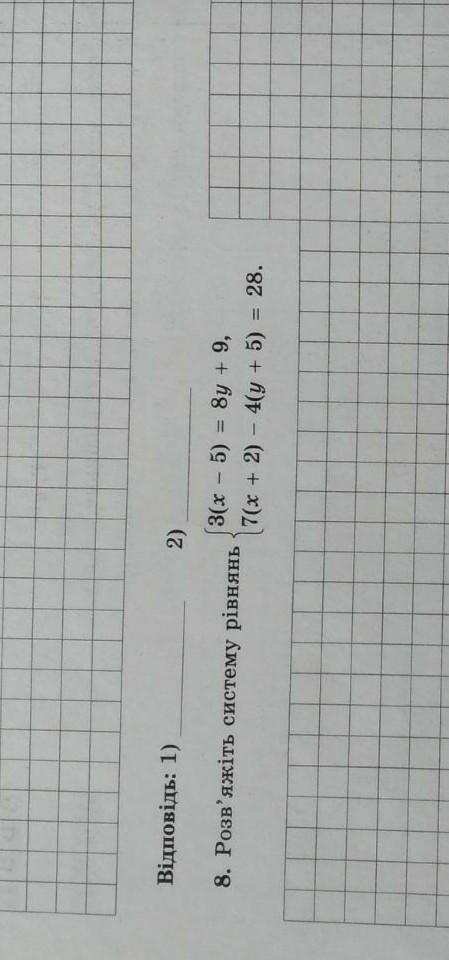 Відповідь: 1) ________ 2) ________
8. Розв’яжіть систему рівнянь { 3(x − 5) = 8y + 9,
7(x + 2) − 4(y + 5) = 28.